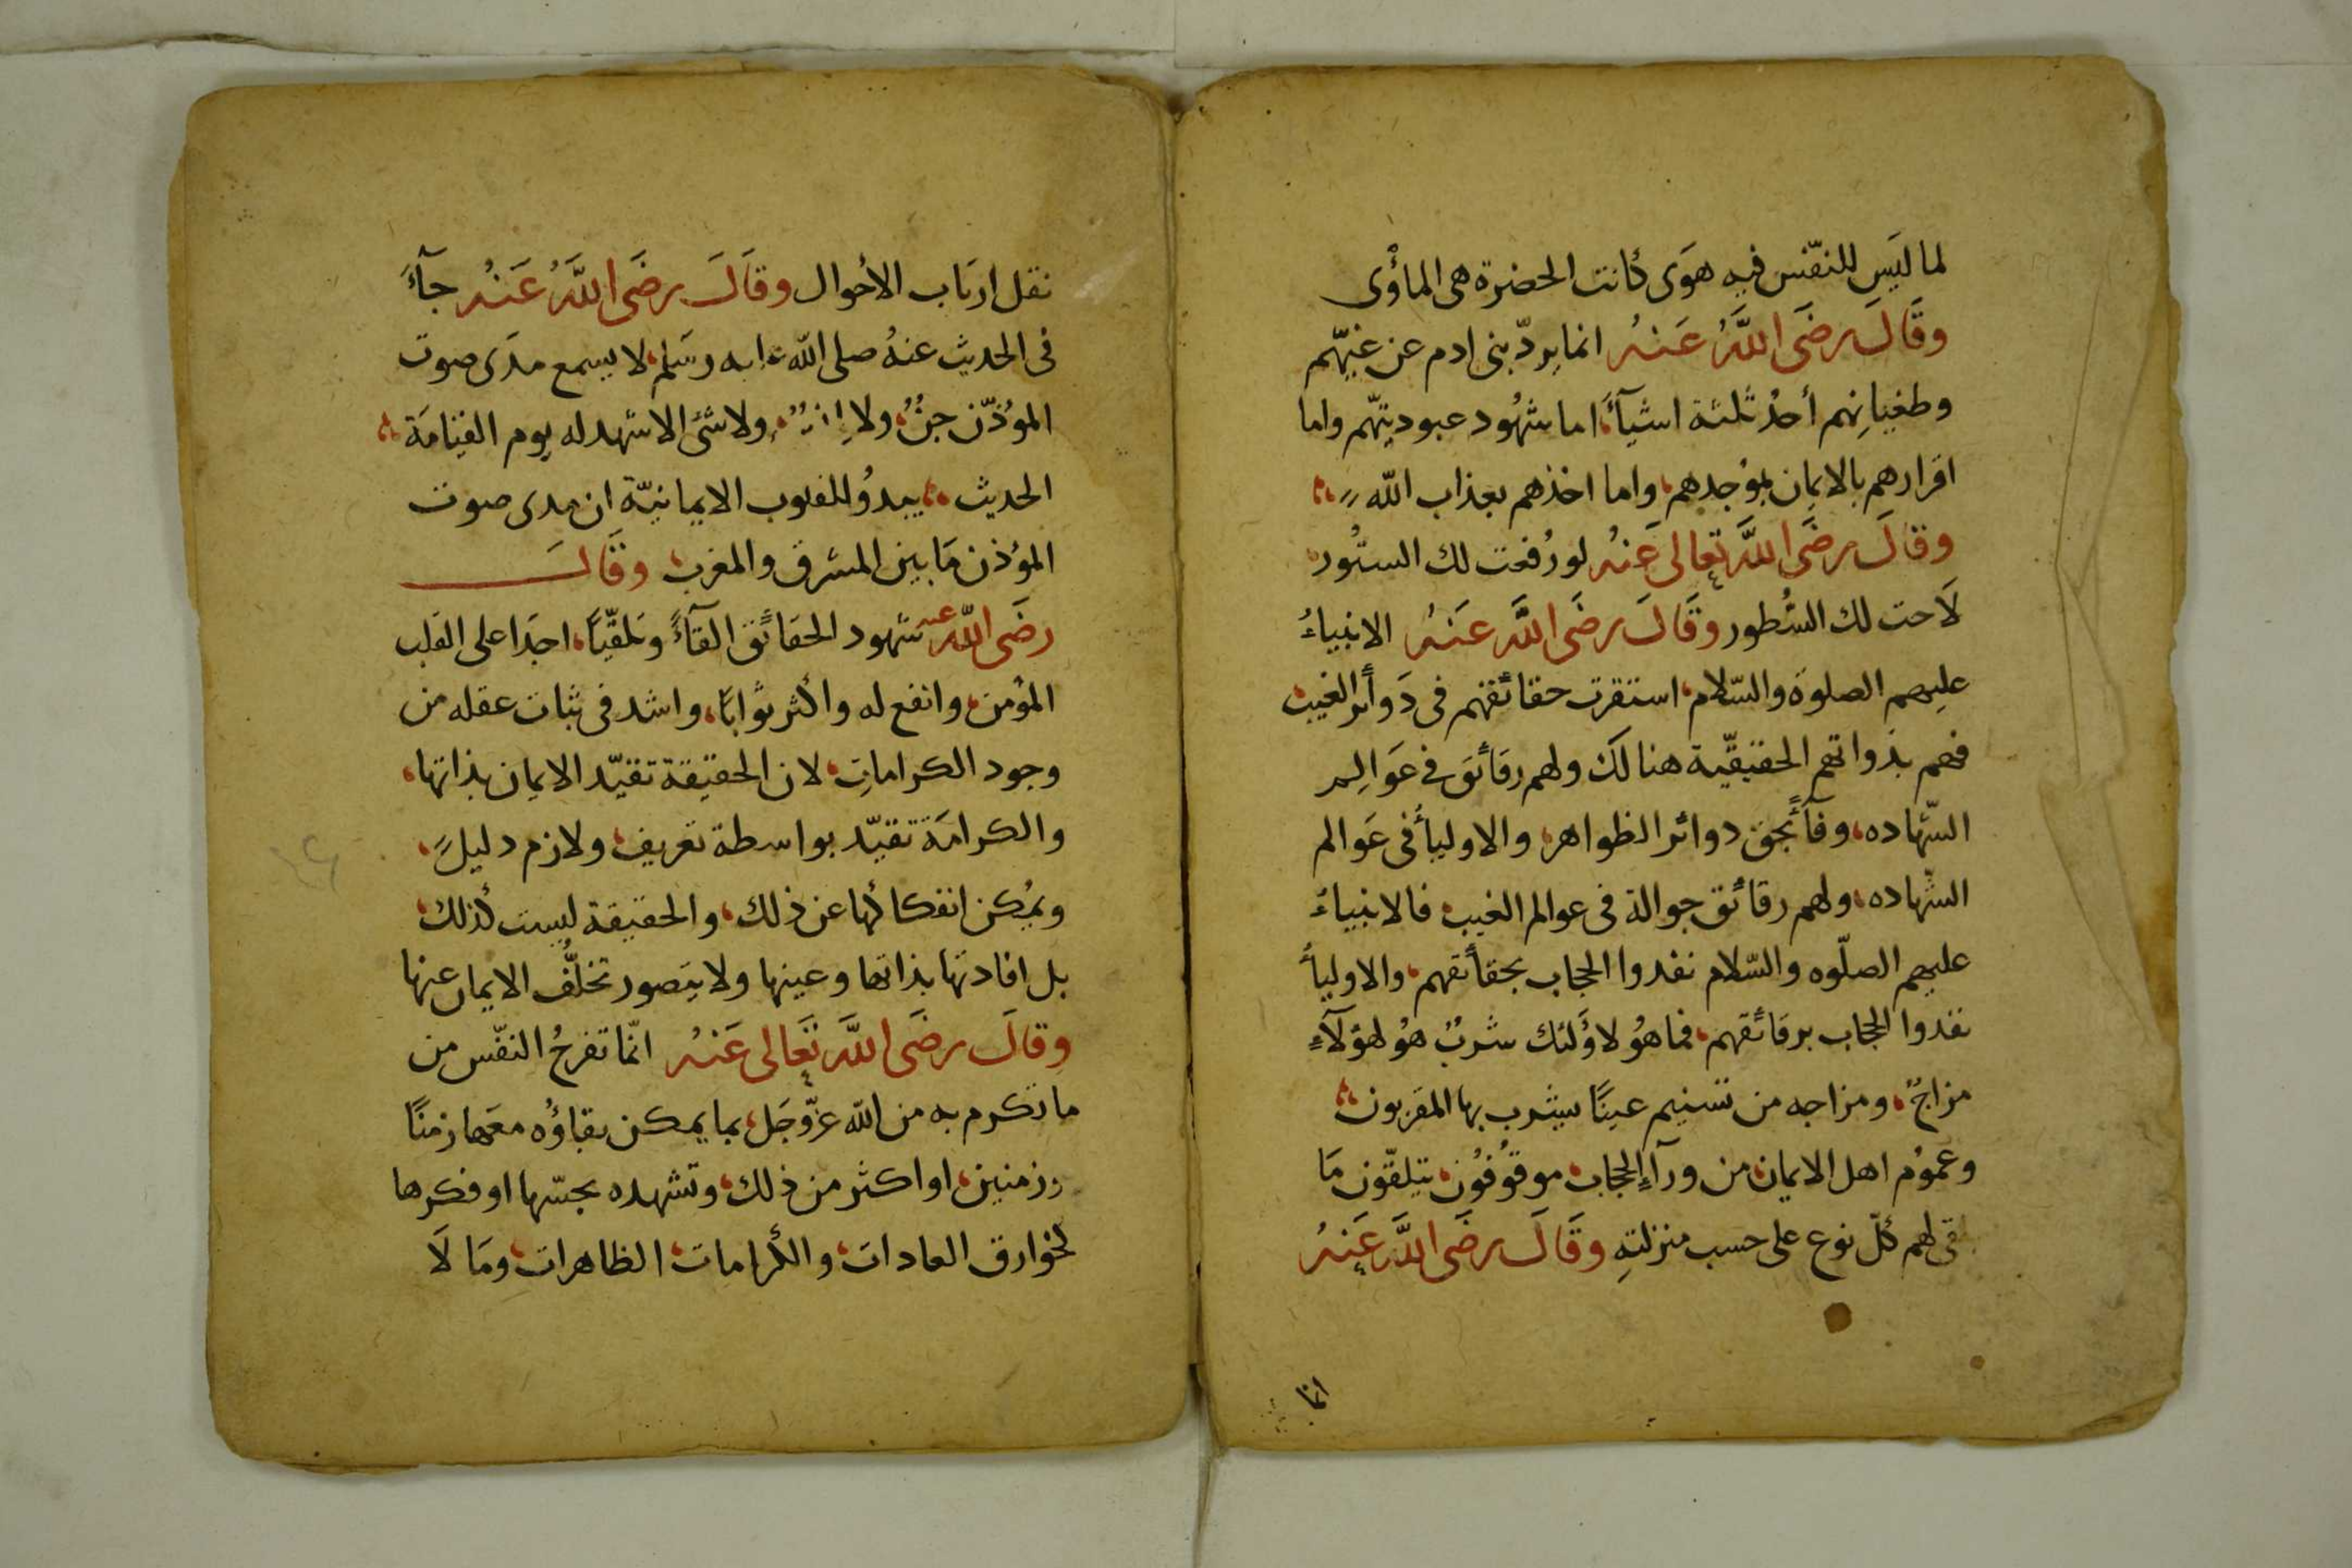 لما ليَس للنفّس فيه هوَى كانت الحضرة هى المأوٰى
وقَالَ رضَى اللَّهُ عَنهُ انما يردّ بنى ادم عن غيّهم
وطغيانِهم أحدُ ثلثة اشيآءَ اما شهُود عبوديتهّم واما
اقرارهم بالايمان بموُجدهم واما اخذهم بعذاب اللّه
وقالَ رضَى اللَّه تعالى عَنهُ لو رُفعت لك الستُور
لَاحت لك السُّطور وقَالَ رضَى اللَّه عَنهُ الانبياءُ
عليهم الصلوة والسّلام استقرت حقائقهم فى دَوائر الغيب
فهم بذواتهم الحقيقيّة هنالكَ ولهم رقائق فى عوَالم
الشّهاده وفآئجق دوائر الظواهر والاوليأ فى عَوالم
الشّهاده ولهم رقائق جوالة فى عوالم الغيب فالانبياءُ
عليهم الصلّوه والسّلام نفدوا الحجاب بحقائقهم والاوليأ
نفدوا الحجاب برقائقهم فما هُو لاوُلئك شربٌ هوُ لهوُلآءِ
مزاجٌ ومزاجه من تسنيم عينًا يشرب بها المقربون
وعموُم اهل الايمان من ورآءِ الحجاب موقوُفوُن يتلقّون مَا
لقى لهم كلّ نوع على حسب منزلتهِ وقَالَ رضَى اللَّه عَنهُ
انما
نقل ارباب الاحوال وقَالَ رضَى اللَّهُ عَنْهُ جآءَ
فى الحديث عنهُ صلى اللّه عليه وسَلم لا يسمع مدَى صوت
الموُذّن جنٌّ ولا انسٌ ولا شئ الا شهد له يوم القيامَة
الحديث يبدوُ للقلوب الايمانيّة ان مدى صوت
الموُذن مَا بين المشرق والمغرب وقَالَ
رضَى اللّه عنه شهود الحقائق القآءً وتلقّيًا اجدَا على القلب
الموُمن وانفع له واكثر ثوابًا واشد فى ثبات عقله من
وجود الكراماتِ لان الحقيقة تقيّد الايمان بذاتها
والكرامَة تقيّد بواسطة تعريف ولازم دليلٍ
ويمُكن انفكاكها عن ذلك والحقيقة ليست كذلك
بل افادتها بذاتها وعينها ولا يتصور تخلُّف الايمان عنها
وقالَ رضَى اللَّه تعَالى عَنهُ انمّا تفرحُ النفّس من
ما تكرم به من اللّه عزّوجَل بما يمكن بقاؤُه معَها زمنًا
وزمنين او اكثر من ذلك وتشهده بحسّها او فكرها
لخوارق العادات والكرامات الظاهرات ومَا لَا